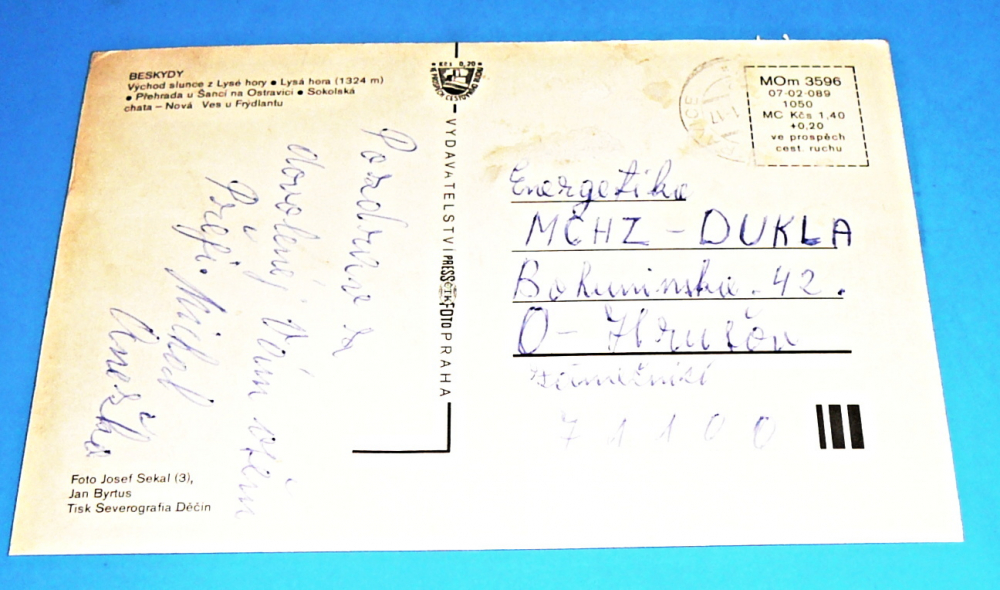 BESKYDY
Východ slunce z Lysé hory • Lysá hora (1324 m)
• Přehrada u Šancí na Ostravici • Sokolská
chata – Nová Ves u Frýdlantu
Kčs 0,20
VYDAVATELSTVÍ PRESSFOTO PRAHA
MOm 3596
07-02-089
1050
MC Kčs 1,40
+0,20
ve prospěch
cest. ruchu
Pozdrav z
dovolené Vám všem
Přeji. Michal
Anežka
Energetika
MCHZ - DUKLA
Bohuminska. 42.
O - Hrušov
71100
Foto Josef Sekal (3),
Jan Byrtus
Tisk Severografia Děčín